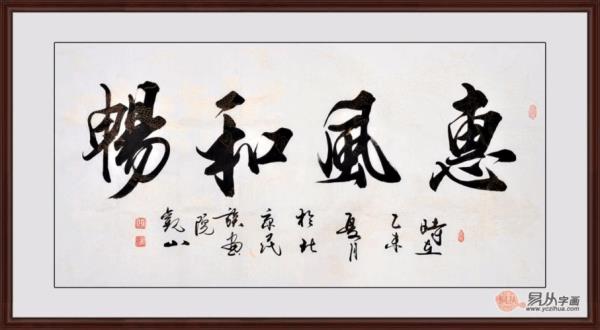 惠風和暢
時在
乙未
夏月
於北
京民
族画
院
觀山
易从字画
www.yczihua.com